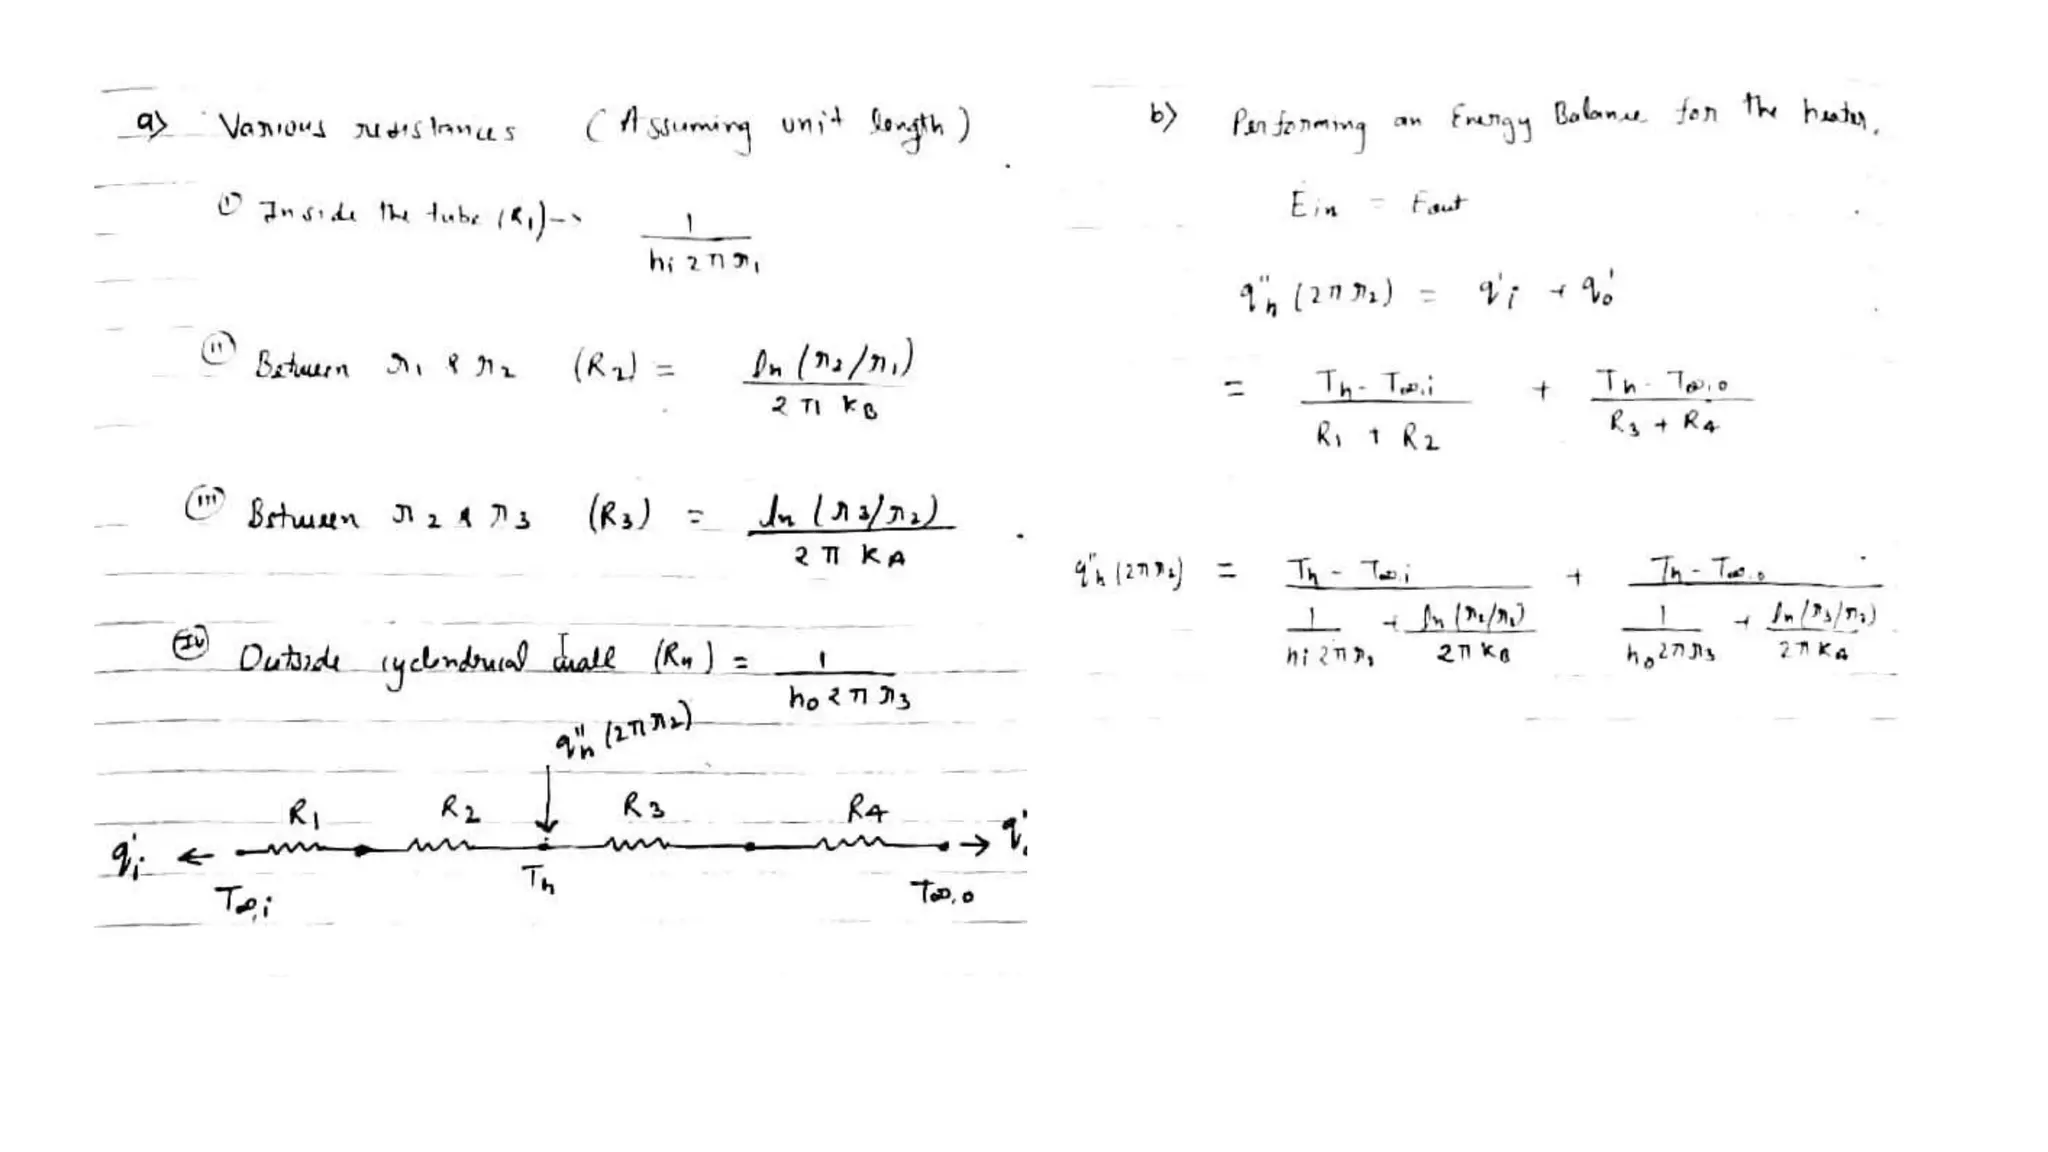 a) Various resistances (Assuming unit length)
(i) Inside the tube (R1) --> 1 / hi 2π r1
(ii) Between r1 & r2 (R2) = ln (r2/r1) / 2 π kB
(iii) Between r2 & r3 (R3) = ln (r3/r2) / 2 π kA
(iv) Outside cyclindrical wall (R4) = 1 / ho 2 π r3
q''h (2π r2)
R1 R2 R3 R4
q'i
Th
T∞,i T∞,o
b) Performing an Energy Balance for the heater,
Ein = Eout
q''h (2π r2) = q'i + q'o
= Th - T∞,i / R1 + R2 + Th - T∞,o / R3 + R4
q''h (2π r2) = Th - T∞,i / (1 / hi 2π r1 + ln (r2/r1) / 2π kB) + Th - T∞,o / (1 / ho 2π r3 + ln (r3/r2) / 2π kA)